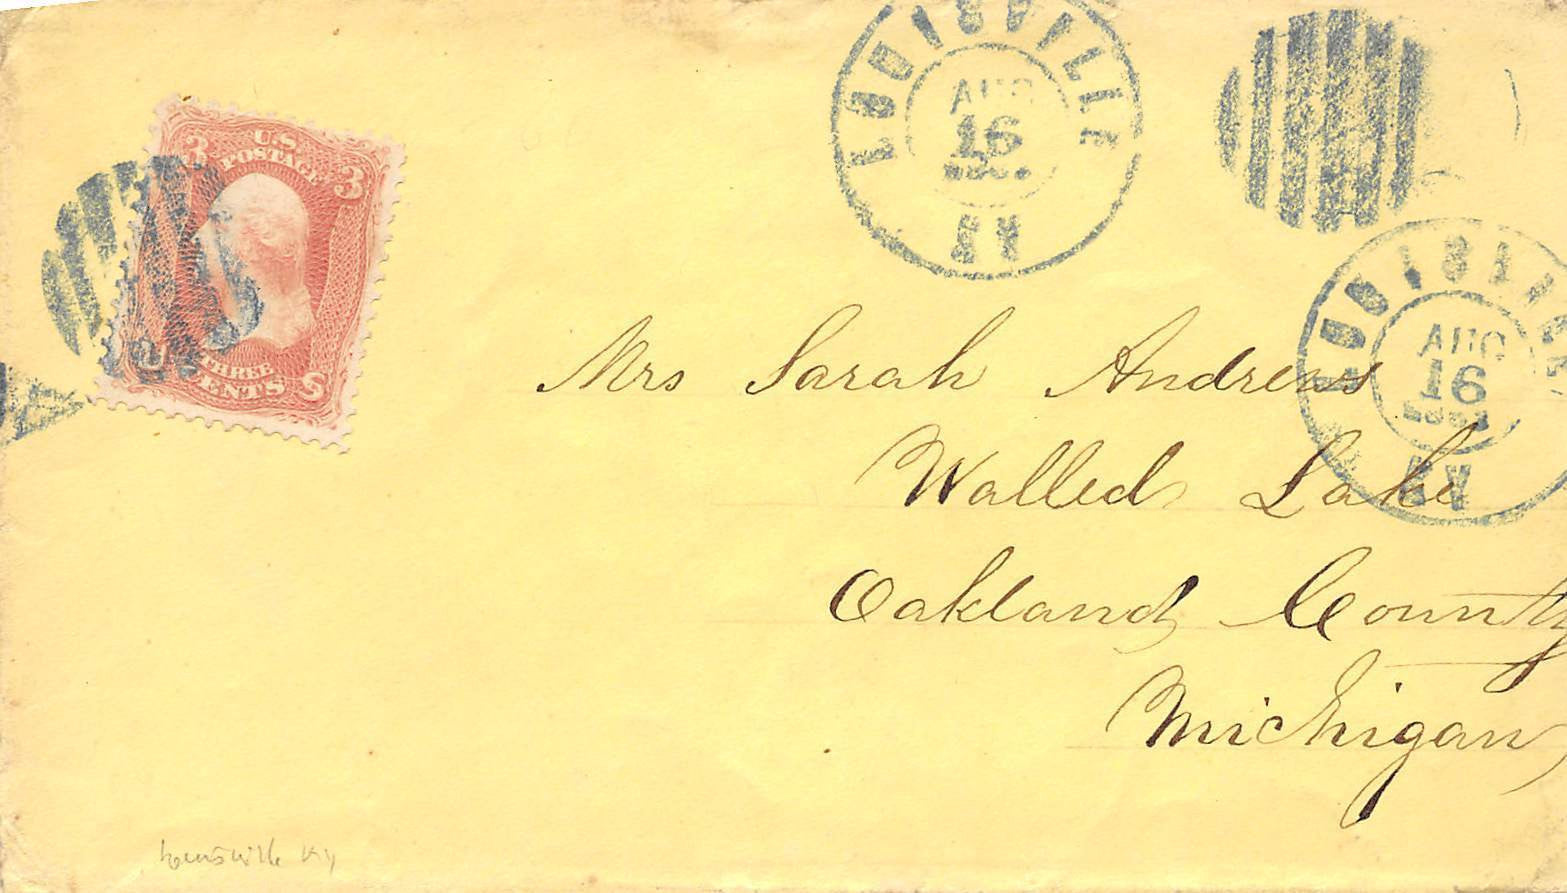 U.S.
POSTAGE
3 3
THREE
CENTS
LOUISVILLE
AUG
16
KY
LOUISVILLE
AUG
16
KY
Mrs Sarah Andrews
Walled Lake
Oakland County
Michigan
Louisville Ky